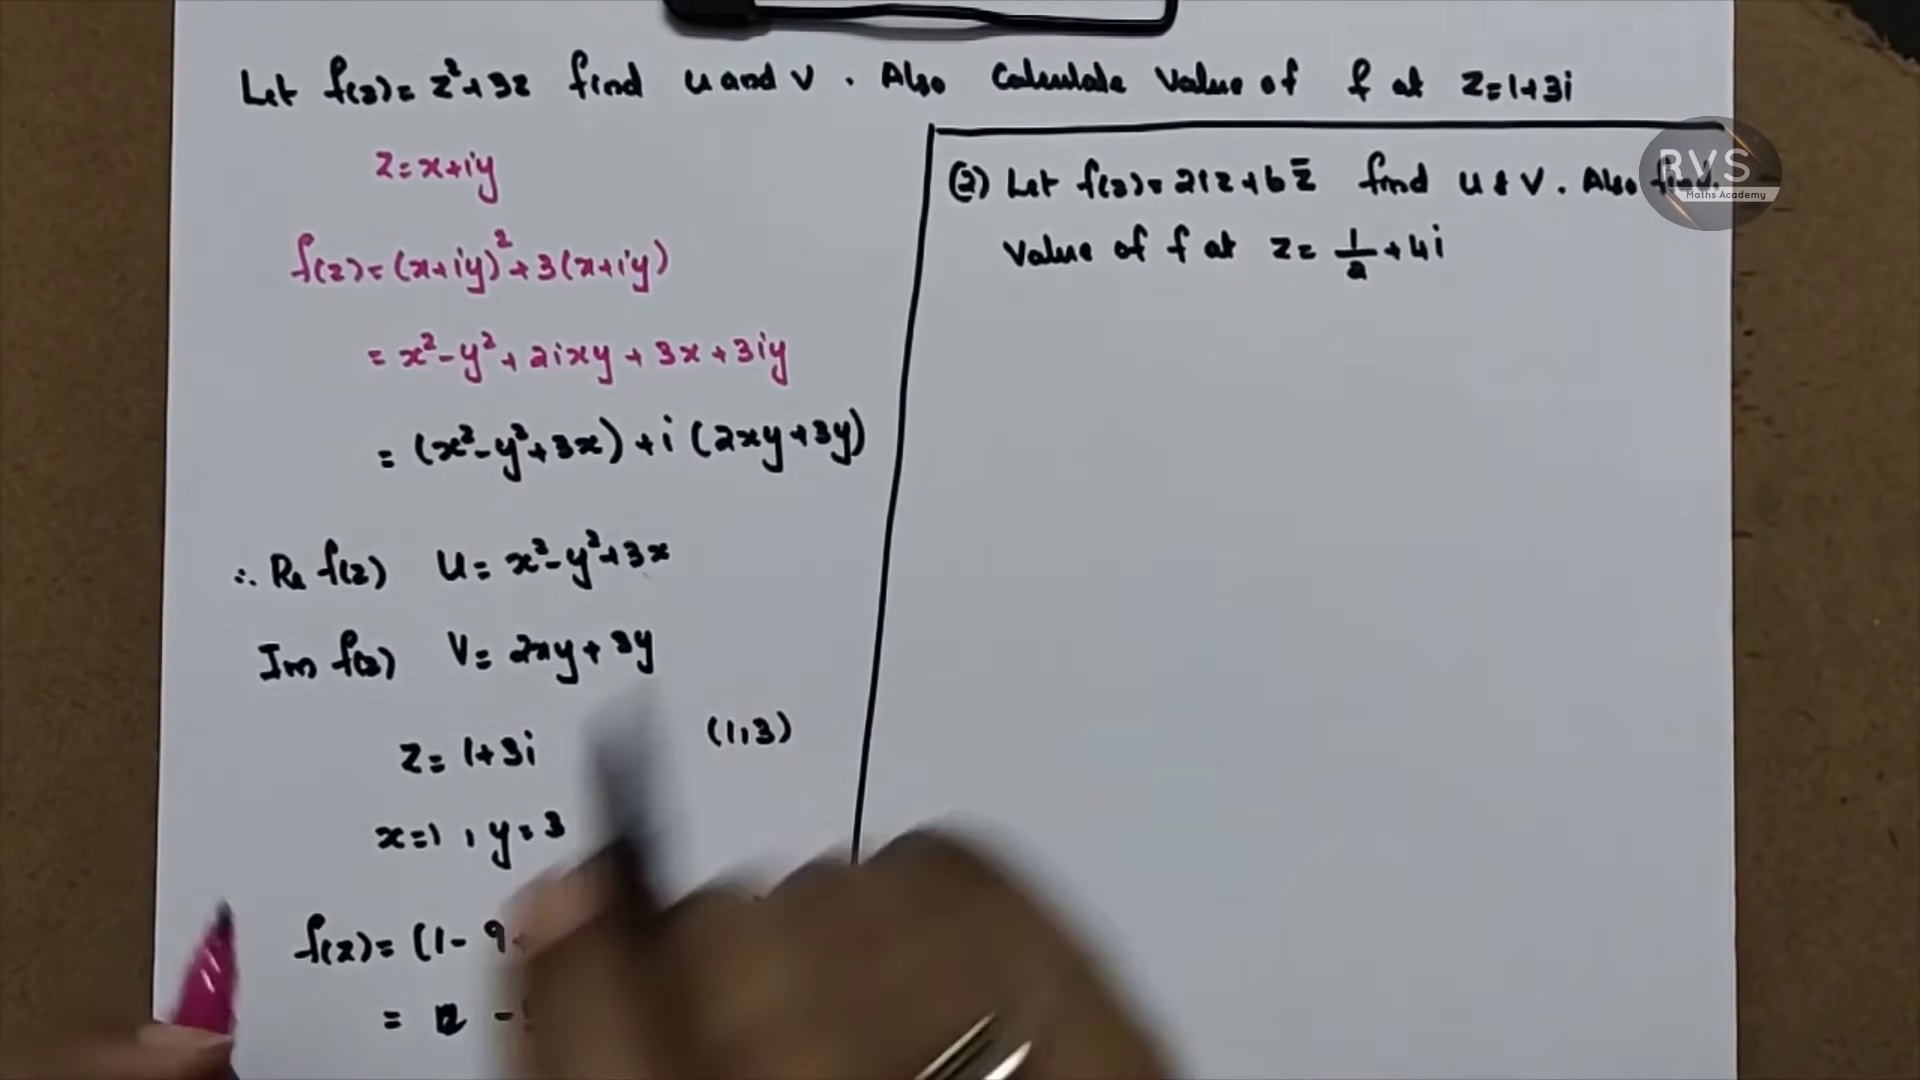 Let f(z) = z² + 3z find u and v . Also Calculate Value of f at z = 1+3i
z = x+iy
f(z) = (x+iy)² + 3(x+iy)
= x² - y² + 2ixy + 3x + 3iy
= (x² - y² + 3x) + i (2xy + 3y)
∴ Re f(z) u = x² - y² + 3x
Im f(z) v = 2xy + 3y
z = 1+3i (1,3)
x=1 , y=3
f(z) = (1 - 9
= -
(2) Let f(z) = 2iz + 6z̄ find u & v . Also find
Value of f at z = 1/2 + 4i
RVS
Maths Academy